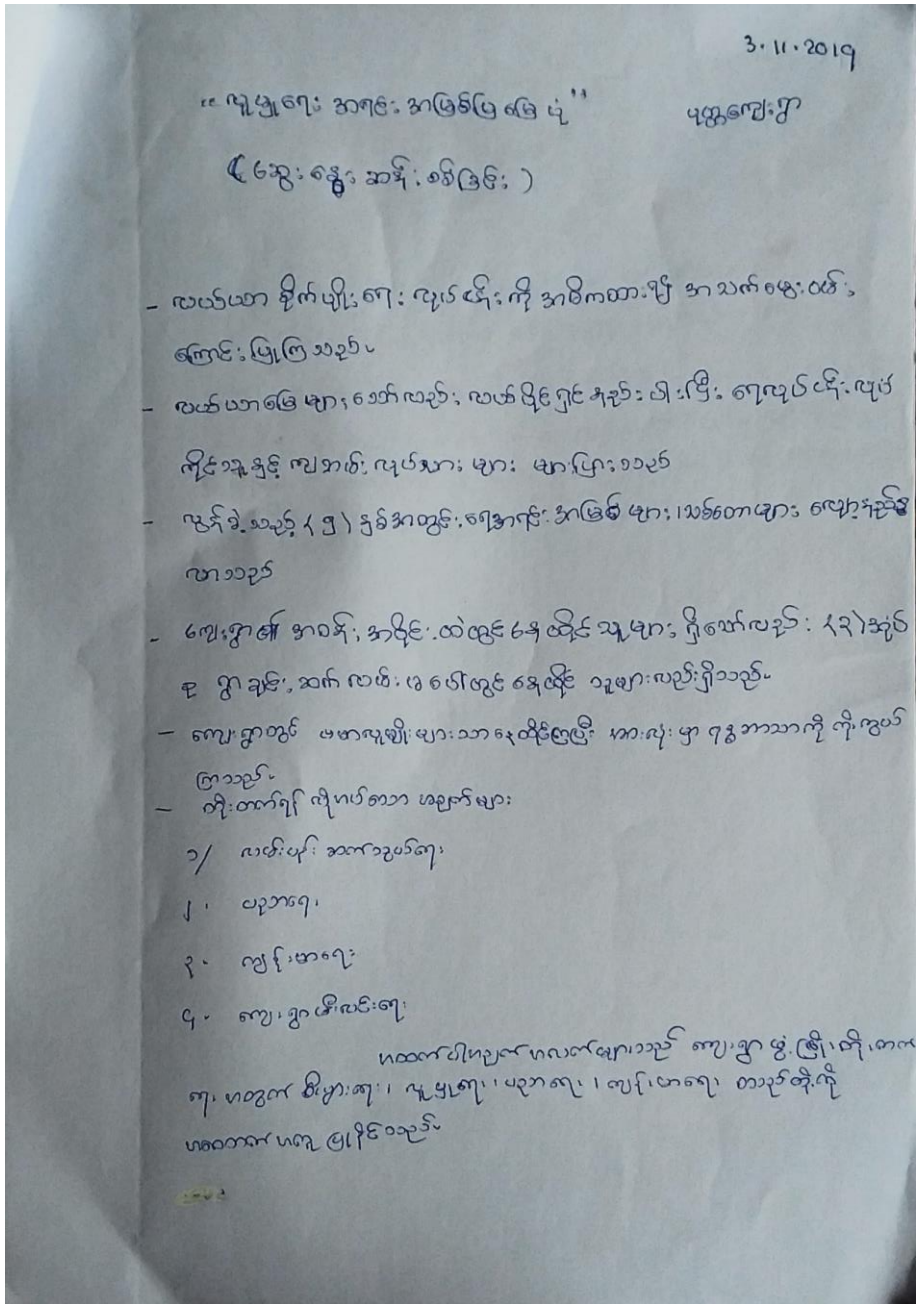 3.11.2019
"လူမှုရေး အရင်းအမြစ်ပြမြေပုံ" ပုတ္တကျေးရွာ
(ဆွေးနွေးဆန်းစစ်ခြင်း)
- လယ်ယာစိုက်ပျိုးရေးလုပ်ငန်းကို အဓိကထား၍ အသက်မွေးဝမ်း
ကြောင်းပြုကြသည်။
- လယ်ယာမြေများသော်လည်း လယ်ပိုင်ရှင်နည်းပါးပြီး ရေလုပ်ငန်းလုပ်
ကိုင်သူနှင့် ကျဘမ်းလုပ်သားများ များပြားသည်
- လွန်ခဲ့သည့် (၅) နှစ်အတွင်း ရေအရင်းအမြစ်များ၊ သစ်တောများ လျော့နည်း
လာသည်
- ကျေးရွာ၏ အဝန်းအဝိုင်းထဲတွင် နေထိုင်သူများ ရှိသော်လည်း (၃) အုပ်
စု ရွာချင်းဆက်လမ်းမပေါ်တွင် နေထိုင်သူများလည်းရှိသည်။
- ကျေးရွာတွင် ဗမာလူမျိုးများသာ နေထိုင်ကြပြီး အားလုံးမှာ ဗုဒ္ဓဘာသာကို ကိုးကွယ်
ကြသည်။
- တိုးတက်ရန် လိုအပ်သော အချက်များ
၁/ လမ်းပန်းဆက်သွယ်ရေး
၂. ပညာရေး
၃. ကျန်းမာရေး
၄. ကျေးရွာမီးလင်းရေး
အထက်ပါအချက်အလက်များသည် ကျေးရွာဖွံ့ဖြိုးတိုးတက်
ရေးအတွက် စီးပွားရေး၊ လူမှုရေး၊ ပညာရေး၊ ကျန်းမာရေး စသည်တို့ကို
အထောက်အကူပြုနိုင်သည်။